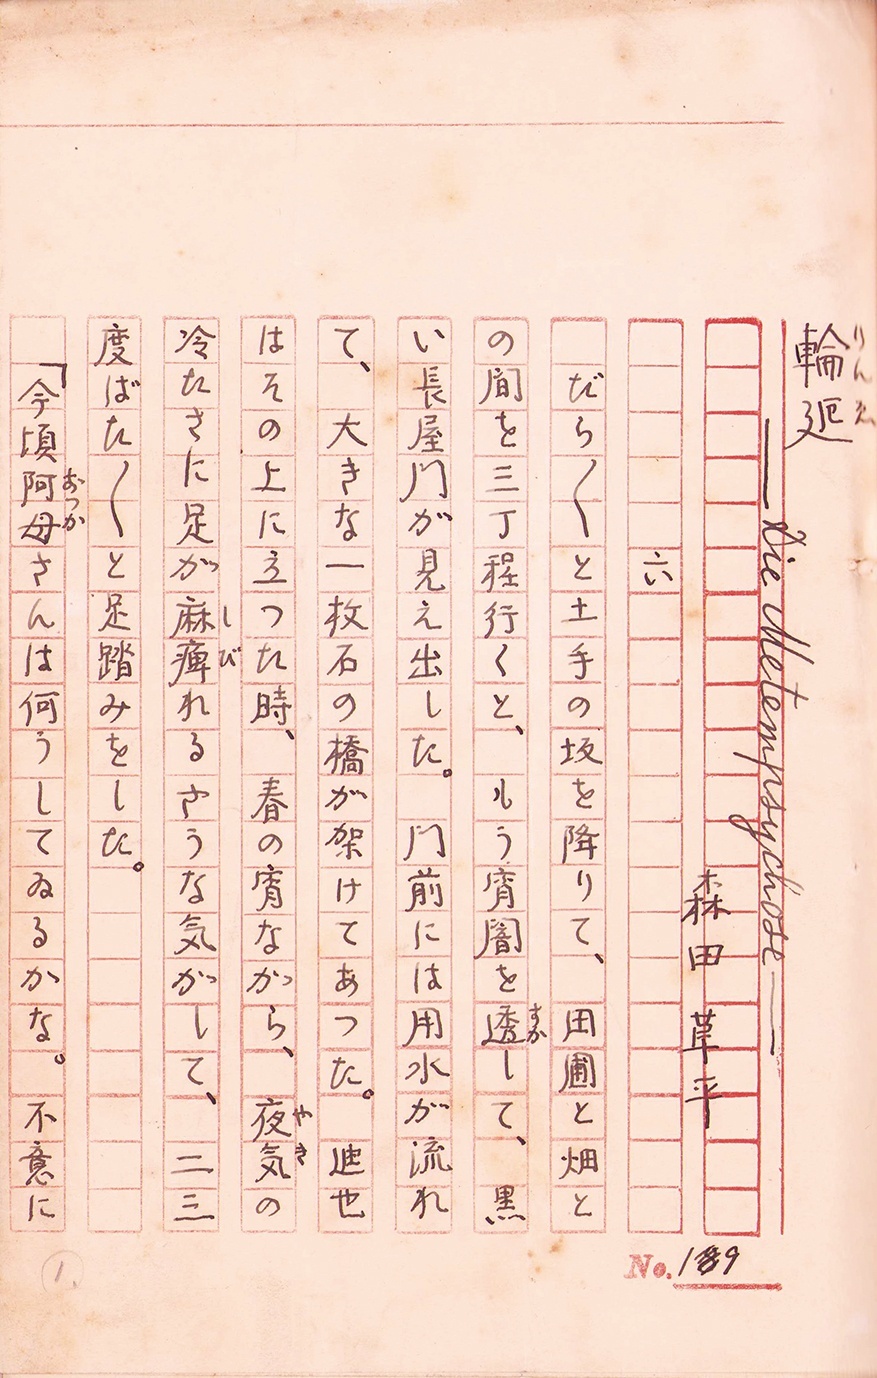 輪廻
りんゑ
―Die Metempsychose―
森田草平
六
だら〱と土手の坂を降りて、田圃と畑と
の間を三丁程行くと、もう宵闇を透して、黒
すか
い長屋門が見え出した。門前には用水が流れ
て、大きな一枚石の橋が架けてあつた。迪也
はその上に立つた時、春の宵ながら、夜気の
やき
冷たさに足が麻痺れるさうな気がして、二三
しび
度ばた〱と足踏みをした。
「今頃阿母さんは何うしてゐるかな。不意に
おつか
No.
1